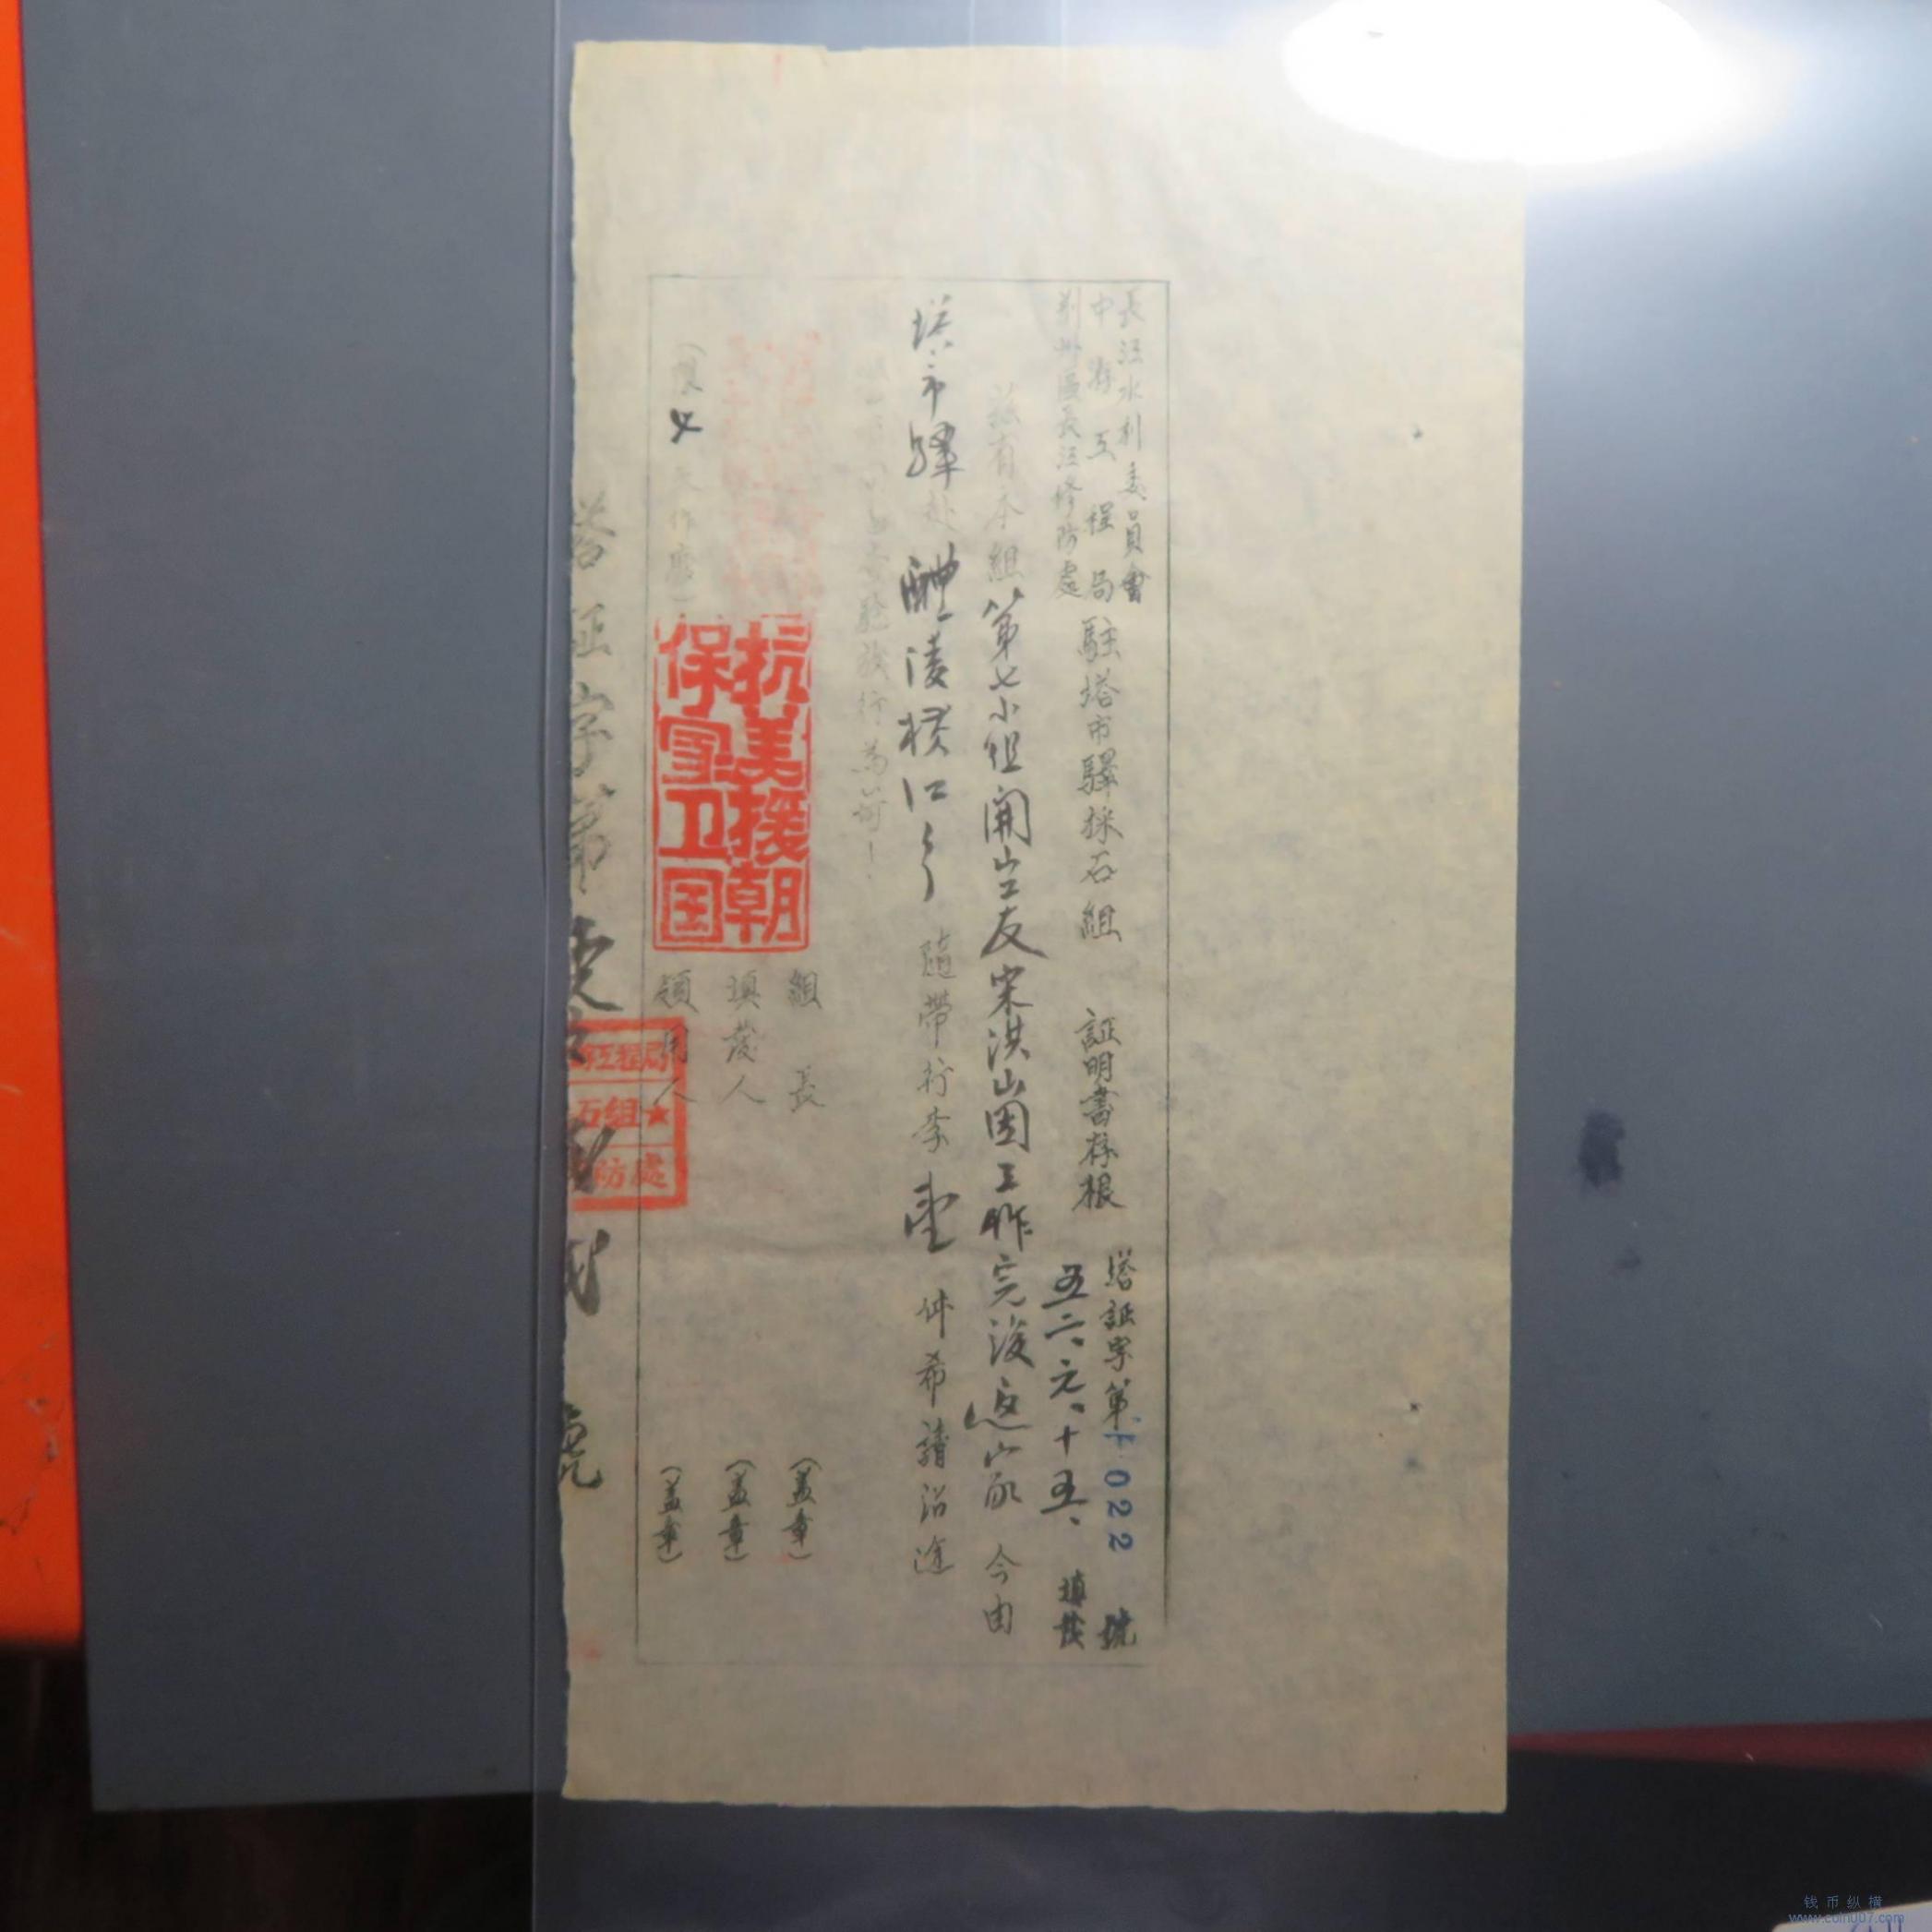 長江水利委員會
中游工程局
荆州區長江修防處
駐塔市驛採石組 証明書存根
塔証字第 022 號
五二、六、十五、填發
茲有本組第七小组開山工友宋洪山因工作完後返家 今由
塔市驛赴醴陵横江 隨帶行李 件希請沿途
查驗放行為荷！
組 長 （盖章）
填發人 （盖章）
領用人 （盖章）
（限 天作廢）
抗美援朝
保家卫国
塔証字第 號
工程局
石組★
防處
钱币纵横
www.coin007.com